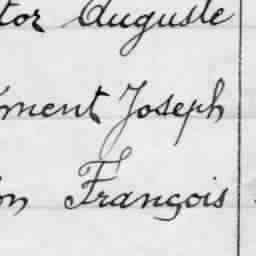 tor Auguste
ment Joseph
on François